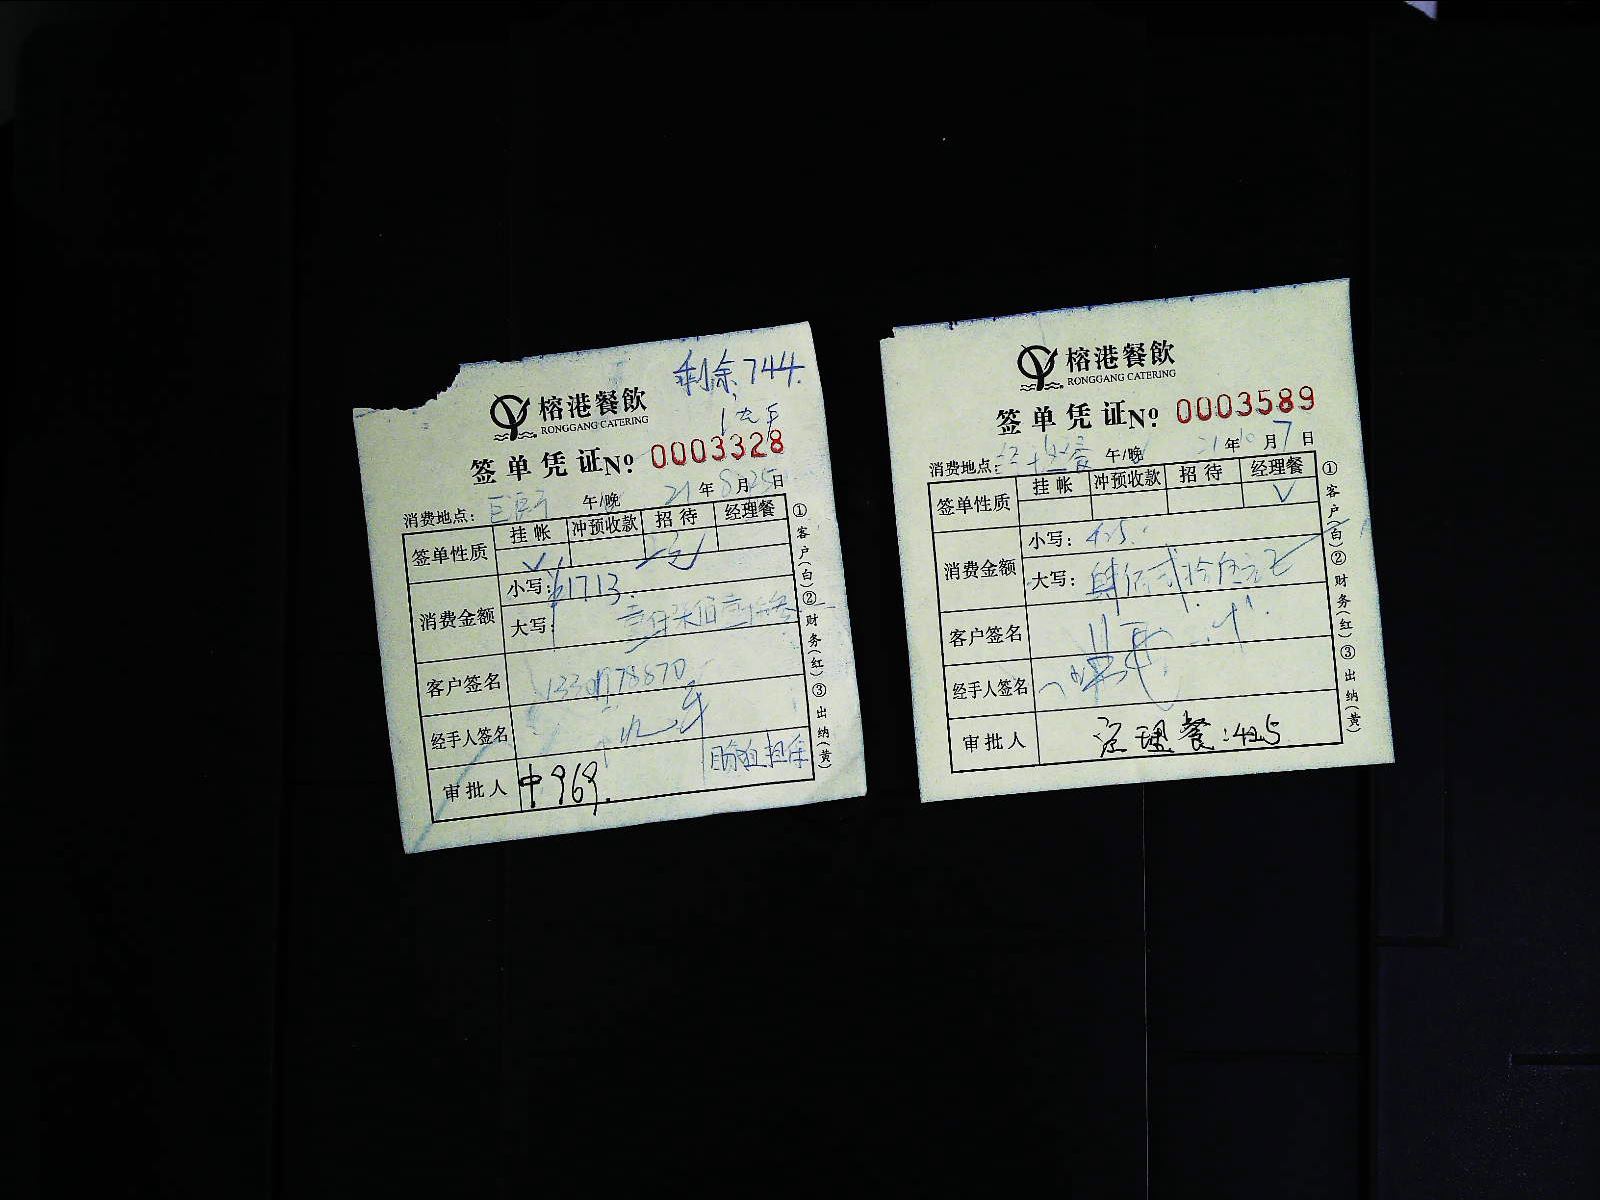 剩余744.
榕港餐飲
RONGGANG CATERING
签单凭证 No 0003328
消费地点: 午/晚 21年8月25日
签单性质 挂帐 冲预收款 招待 经理餐
消费金额 小写: ¥1713.
大写: 壹仟柒佰壹拾叁
客户签名
经手人签名
审批人 中969.
①客户(白)②财务(红)③出纳(黄)
榕港餐飲
RONGGANG CATERING
签单凭证 No 0003589
消费地点: 午/晚 21年10月7日
签单性质 挂帐 冲预收款 招待 经理餐
消费金额 小写: 425.
大写: 肆佰贰拾伍元正
客户签名
经手人签名
审批人 经理餐:425
①客户(白)②财务(红)③出纳(黄)